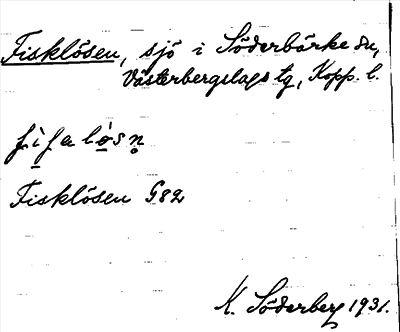 Fisklösen, sjö i Söderbärke sn,
Västerbergslags tg, Kopp. l.
Fisklösen G82
K. Söderberg 1931.